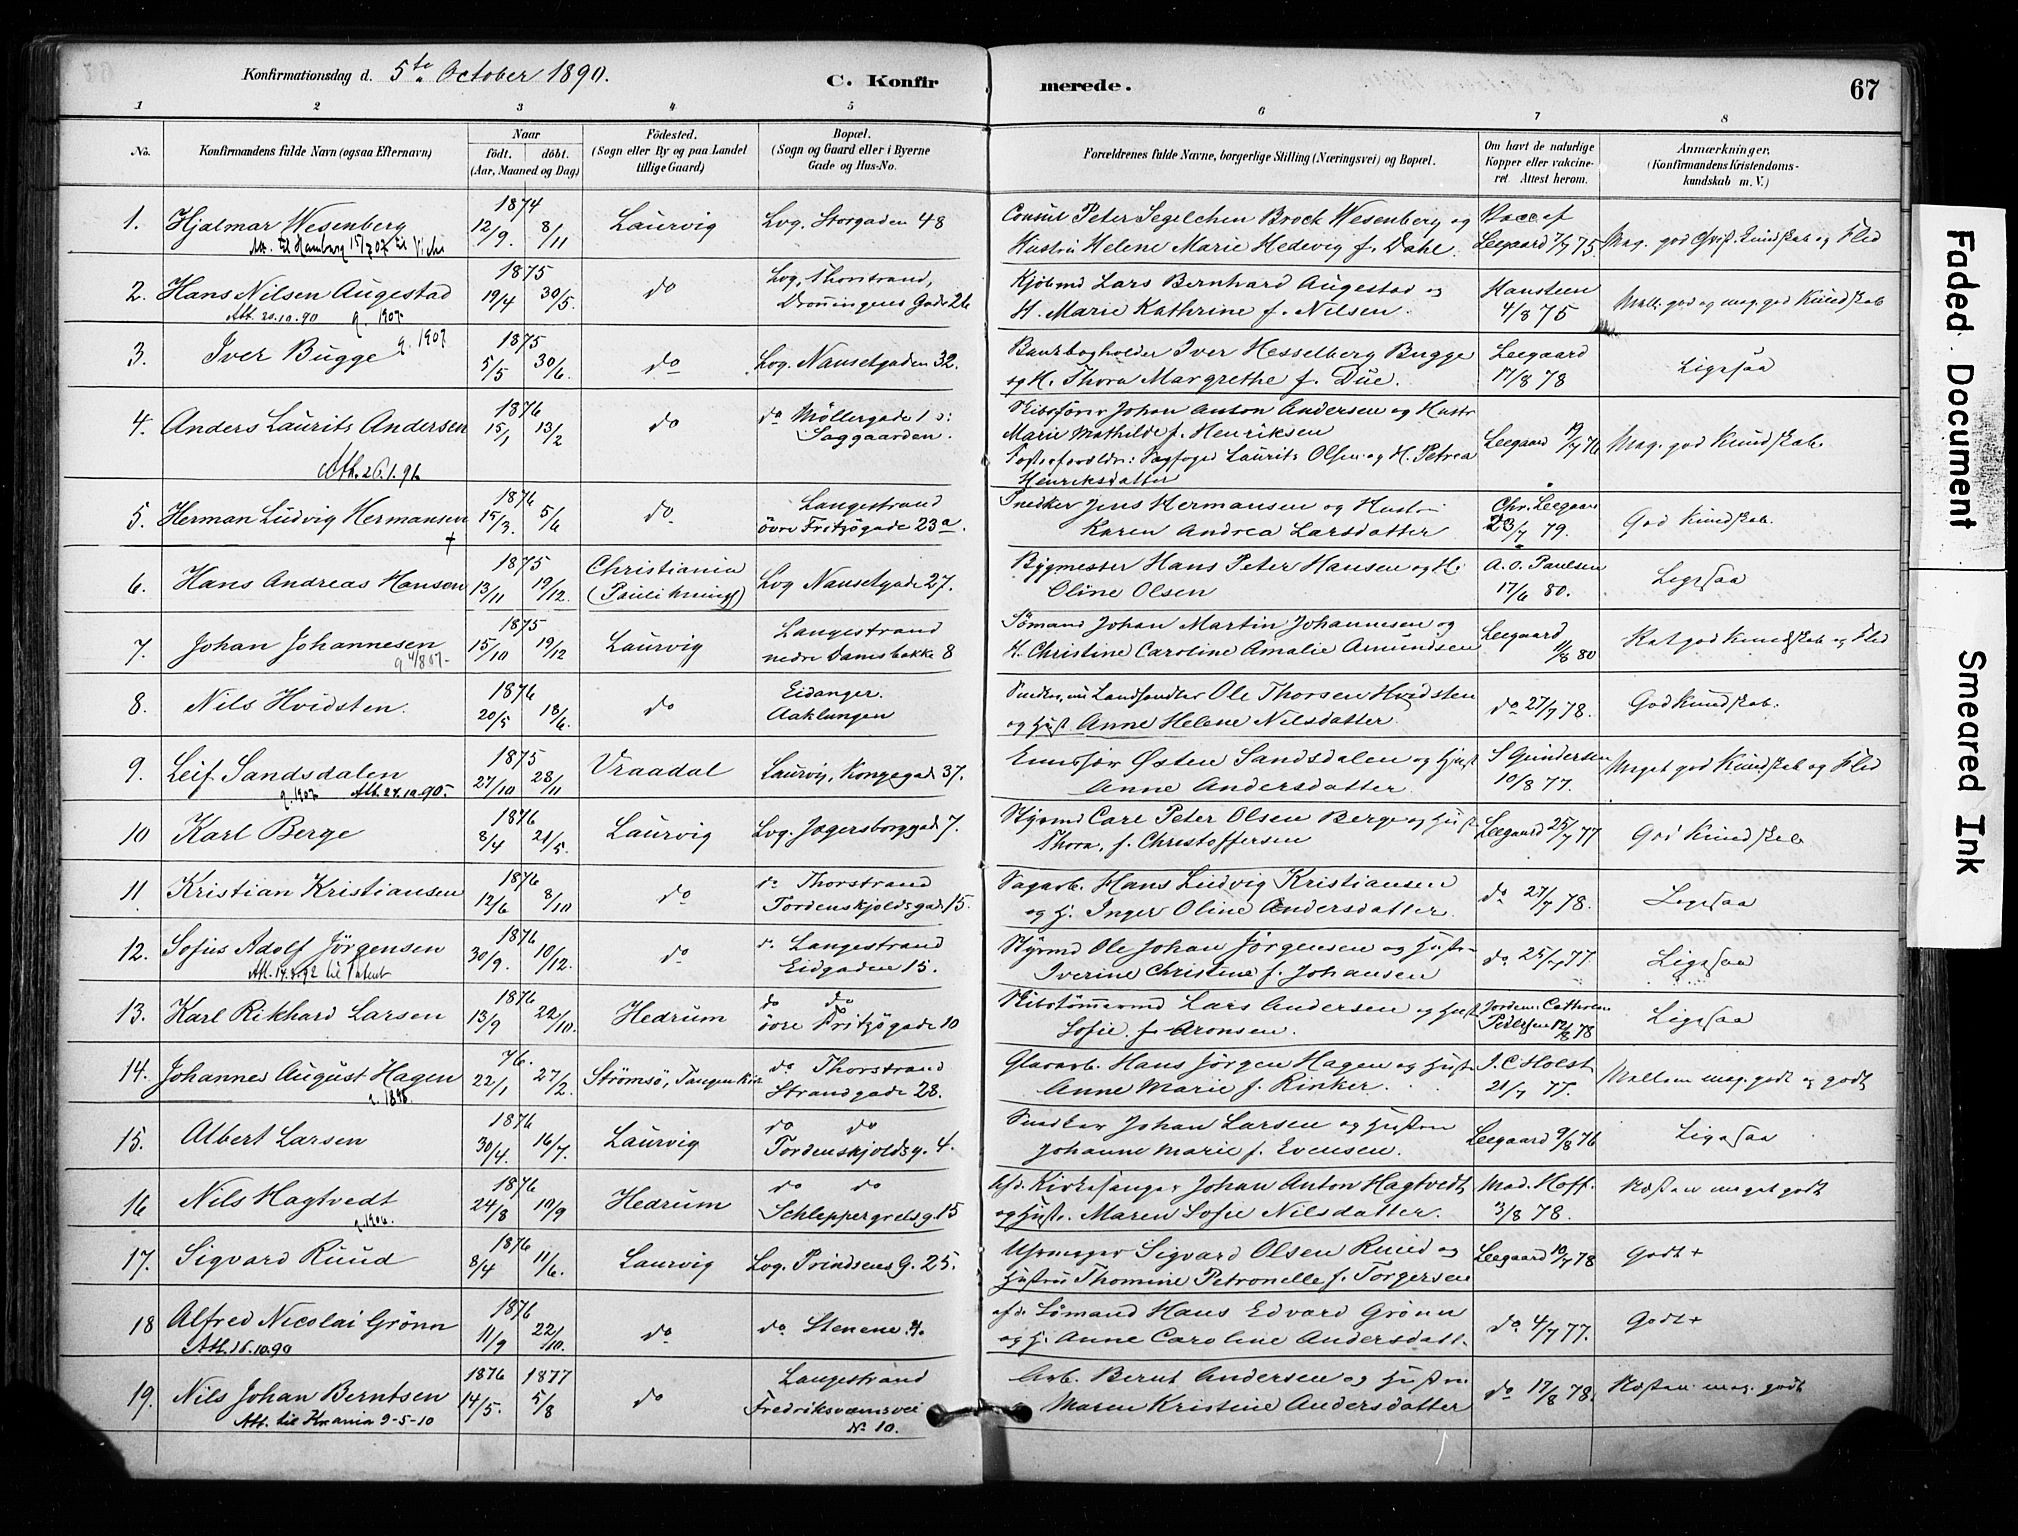 Konfirmationsdag d. 5te October 1890.
C. Konfir
merede.
67
1 2 3 4 5 6 7 8
No. Konfirmandens fulde Navn (ogsaa Efternavn) Naar födt. döbt. (Aar, Maaned og Dag) Födested. (Sogn eller By og paa Landet tillige Gaard) Bopæl. (Sogn og Gaard eller i Byerne Gade og Hus-No. Forældrenes fulde Navne, borgerlige Stilling (Næringsvei) og Bopæl. Om havt de naturlige Kopper eller vakcineret. Attest herom. Anmærkninger, (Konfirmandens Kristendomskundskab m. V.)
1. Hjalmar Wesenberg 1874 12/9. 8/11 Laurvig Lvg. Storgaden 48 Consul Peter Segelchen Brock Wesenberg og Hustru Helene Marie Hedevig f. Dahl. Vacc af Leegaard 7/7 75. Mag. god Christ. Kundskab og Flid
2. Hans Nilsen Augestad 1875 19/4 30/5. do Lvg, Thorstrand, Dronningens Gade 26 Kjöbmd Lars Bernhard Augestad og H. Marie Kathrine f. Nilsen. Hansteen 4/8 75 Mell. god og mag. god Kundskab
Att. 20.10.90 q. 1907
3. Iver Bugge q. 1907 1875 5/5 30/6. do Lvg. Nansetgaden 32. Bankbogholder Iver Hesselberg Bugge og H. Thora Margrethe f. Düe. Leegaard 17/8 78 Ligesaa
4. Anders Laurits Andersen 1876 15/1 13/2 do do Møllergade 1 o: Saggaarden. Skibsförer Johan Anton Andersen og Hustr Marie Mathilde f. Henriksen
Fosterforældre: Sagfoged Laurits Olsen og H. Petrea Henriksdatter Leegaard 19/7 76 Mag. god Kundskab.
Att. 26.1.96
5. Herman Ludvig Hermansen 1876 15/3. 5/6 do Langestrand övre Fritzögade 23a. Snedker Jens Hermansen og Hustru Karen Andrea Larsdatter Chr. Leegaard 23/7 79. God Kundskab.
6. Hans Andreas Hansen 1875 13/11 19/12. Christiania (Pauli Menigh) Lvg Nansetgade 27. Bygmester Hans Peter Hansen og H. Oline Olsen A.O. Paulsen 17/6 80. Ligesaa
7. Johan Johannesen 1875 15/10 19/12 Laurvig Langestrand nedre Damsbakke 8 Sömand Johan Martin Johannesen og H. Christine Caroline Amalie Amundsen Leegaard 11/8 80 Kat god Kundskab og Flid
q 4/8 07-
8. Nils Hvidsten. 1876 20/5 18/6. do Eidanger. Aaklungen Snedker, nu Landhandler Ole Thorsen Hvidsten og Hust. Anne Helene Nilsdatter do 27/7 78. God Kundskab.
9. Leif Sandsdalen 1875 27/10 28/11 Vraadal Laurvig, Kongegad 37. Østen Sandsdalen og Hust Anne Andersdatter. S Gundersen 10/8 77. Meget god Kundskab og Flid
q. 1907 Att. 24.10.90-
10 Karl Berge 1876 8/4 21/5. Laurvig Lvg. Jegersborggad 7. Styrmd Carl Peter Olsen Berge og Hust. Thora, f. Christoffersen Leegaard 25/7 77 God Kundskab
11 Kristian Kristiansen 1876 12/6 8/10 do do Thorstrand Tordenskjoldsgad 15. Sagarb. Hans Ludvig Kristiansen og H. Inger Oline Andersdatter. do 27/7 78. Ligesaa
12. Sofus Adolf Jörgensen 1876 30/9. 10/12. do do Langestrand Eidgaden 15. Styrmd Ole Johan Jörgensen og Hustru Iverine Christine f. Johansen do 25/7 77. Ligesaa
Att. 17.3.92 til Patent
13. Karl Rikhard Larsen 1876 13/9 22/10. Hedrum do do övre Fritzögade 10 Skibstömmermd Lars Andersen og Hust Sofie f. Aronsen. Jordem: Cathrine Pedersen 12/8 78 Ligesaa
14. Johannes August Hagen 76. 22/1 27/2. Strömsö, Tangen Kir. do Thorstrand Strandgade 28. Glasarb. Hans Jörgen Hagen og Hustru Anne Marie f. Rinker. J.C Holst 21/7 77. Mellem mag. godt og godt
q. 1898
15. Albert Larsen 1876 30/4. 16/7. Laurvig do do Tordenskjoldsg. 4. Snedker Johan Larsen og Hustru Johanne Marie f. Evensen. Leegaard 9/8 76 Ligesaa
16 Nils Hagtvedt 1876 24/8 10/9 Hedrum do do Schleppegrelsg. 15 Afd. Kirkesanger Johan Anton Hagtvedt og Hustr. Maren Sofie Nilsdatter. Mad. Hoff. 3/8 78. Næsten meget godt
q. 1906.
17. Sigvard Ruud 1876 8/4 11/6. Laurvig Lvg. Prindsens G. 25. Sigvard Olsen Ruud og Hustru Thomine Petronelle f. Torgersen Leegaard 10/7 78 Godt +
18 Alfred Nicolai Grönn 1876 11/9 22/10. do do Stenene 4. afd. Sömand Hans Edvard Grönn og H. Anne Caroline Andersdatt. do 4/7 77. Godt +
Att. 16.10.90
19. Nils Johan Berntsen 1876 14/5. 1877 5/8 do Langestrand Fredriksværnsvei No 10. Arb. Bernt Andersen og Hustru Maren Kristine Andersdatter do 17/8 78. Næsten mag. godt
Att. til Krania 9-5-10
Faded Document
Smeared Ink